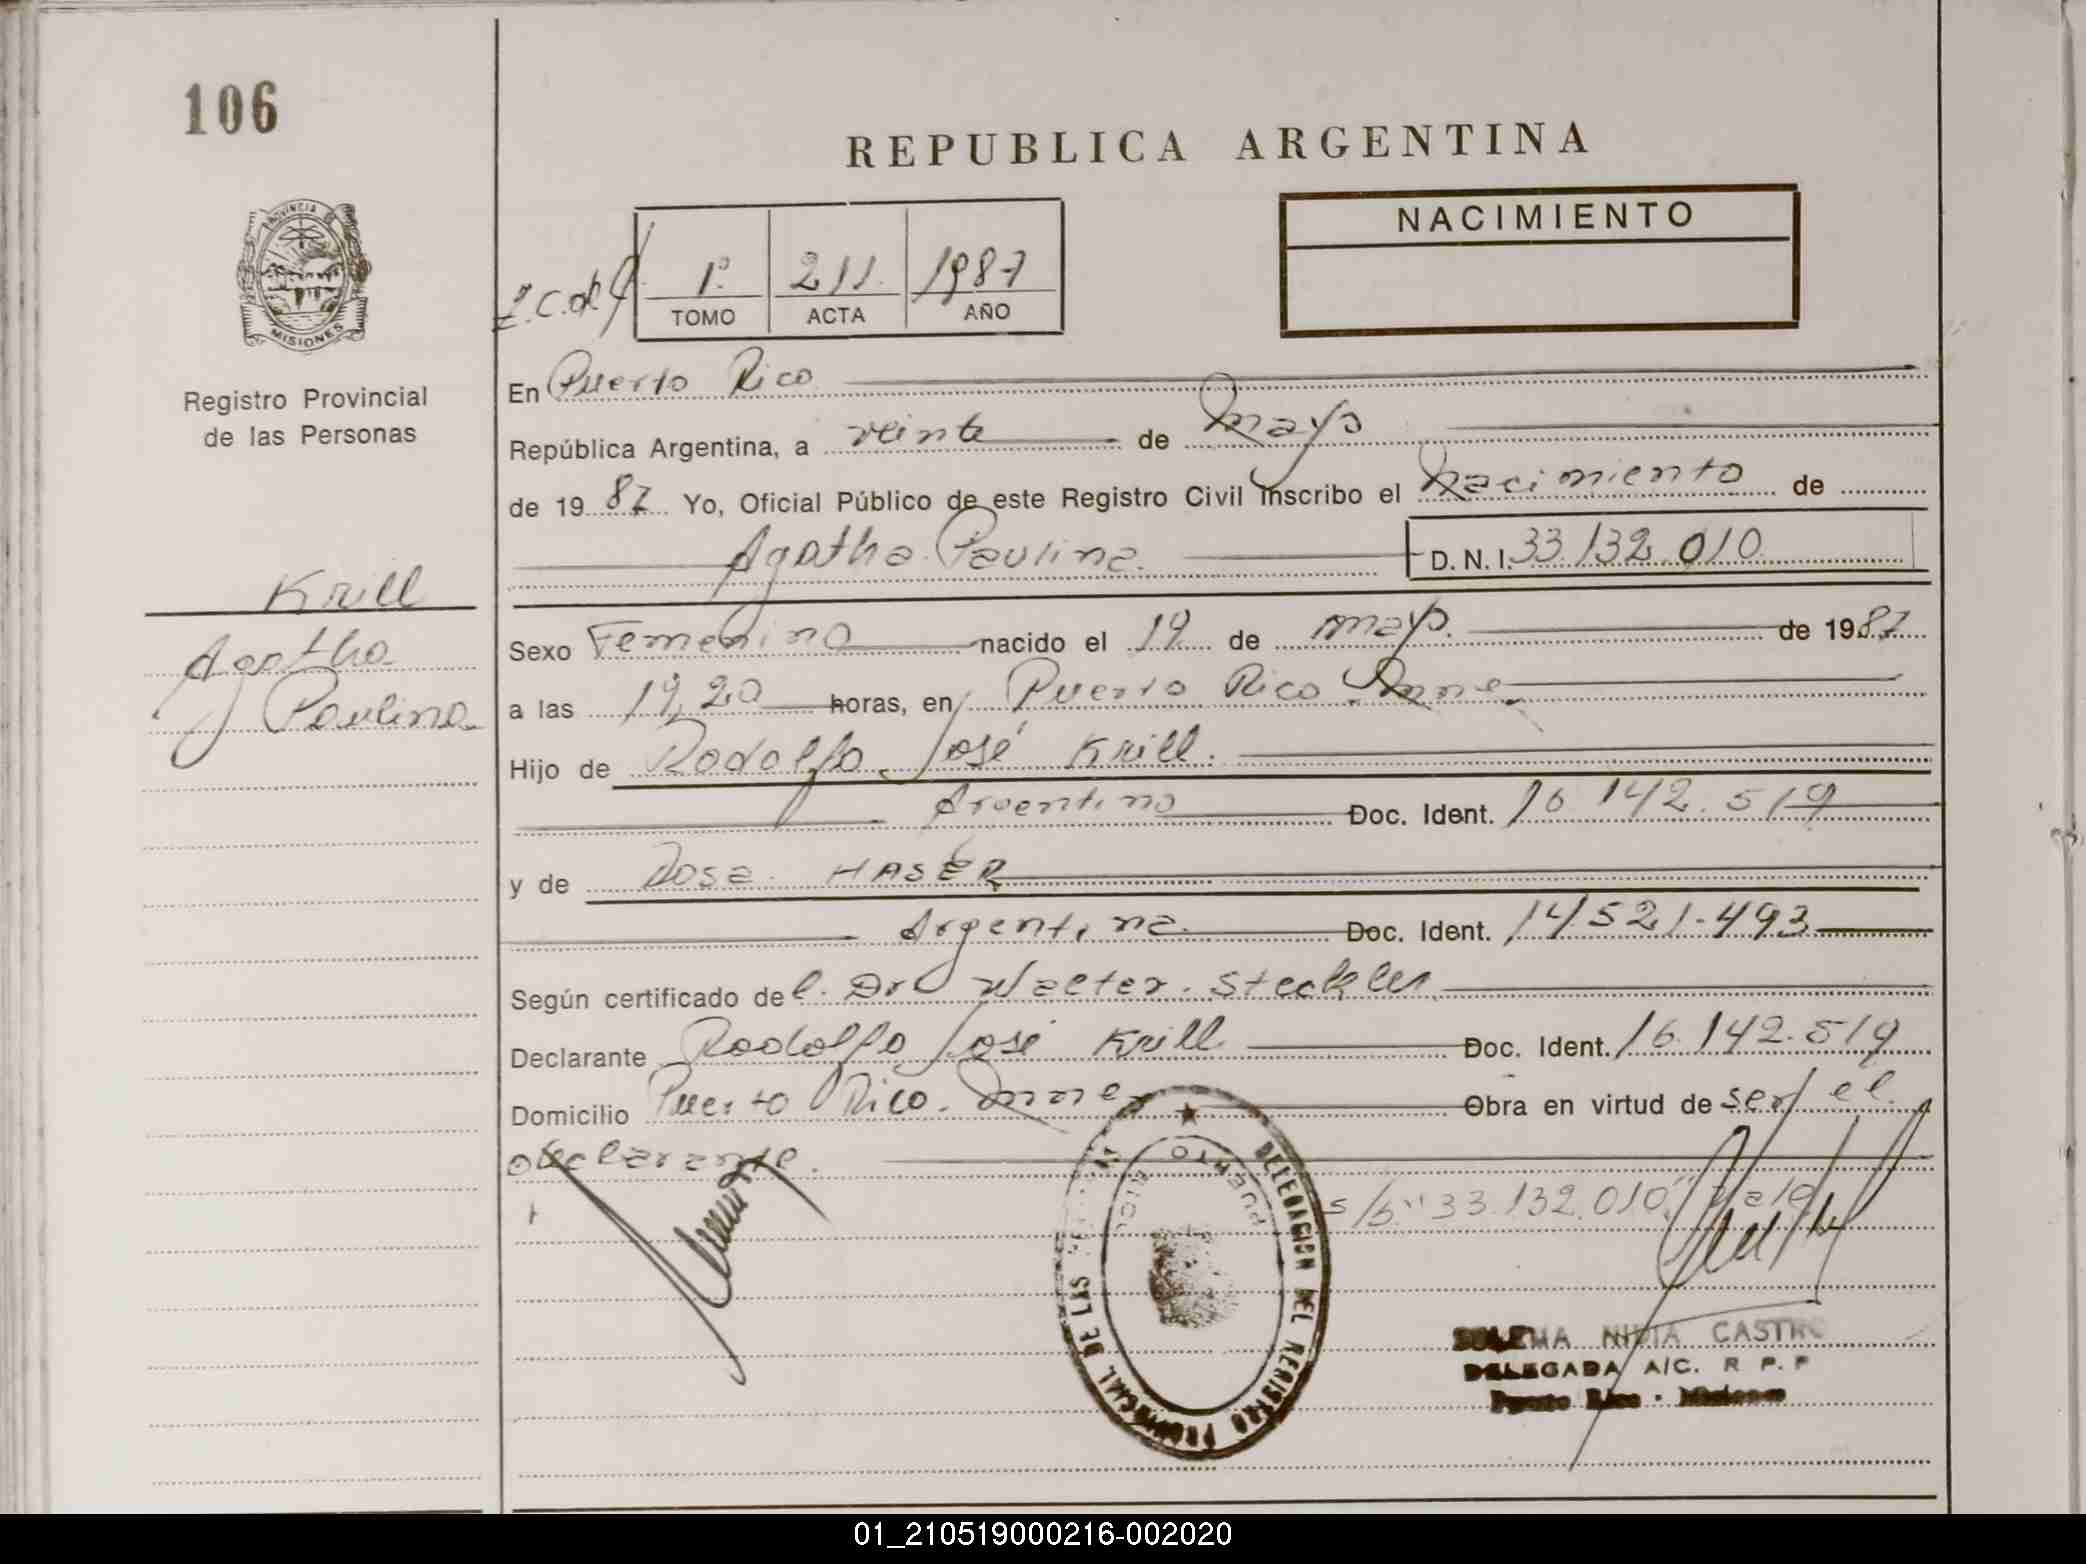 106
REPUBLICA ARGENTINA
NACIMIENTO
1º 211. 1987
TOMO ACTA AÑO
PROVINCIA DE
MISIONES
Registro Provincial
de las Personas
En Puerto Rico
República Argentina, a veinte de Mayo
de 1987 Yo, Oficial Público de este Registro Civil inscribo el Nacimiento de
Agatha Paulina. D. N. I. 33.132.010
Krill
Agatha
Paulina
Sexo Femenino nacido el 19 de mayo. de 1987
a las 19,20 horas, en Puerto Rico Mnes
Hijo de Rodolfo José Krill.
Argentino Doc. Ident. 16.142.519
y de Rosa HASER
Argentina. Doc. Ident. 14.521.493
Según certificado del. Dr. Walter. Steckler
Declarante Rodolfo José Krill Doc. Ident. 16.142.519
Domicilio Puerto Rico. Mnes Obra en virtud de ser el
declarante.
s/b "33.132.010" Vale
DELEGACION DEL REGISTRO PROVINCIAL DE LAS
PUERTO RICO
NIDIA CASTRO
DELEGADA A/C. R. P. P
Puerto Rico - Misiones
01_210519000216-002020